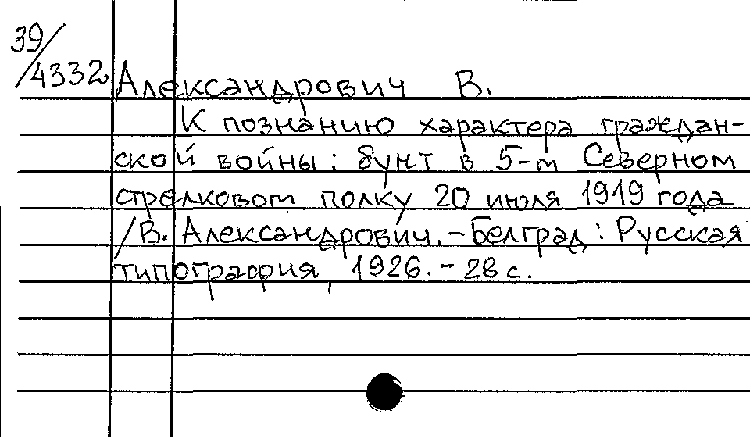 39/4332
Александрович В.
К познанию характера граждан-
ской войны: бунт в 5-м Северном
стрелковом полку 20 июля 1919 года
/В. Александрович.-Белград: Русская
типография, 1926.-28 с.